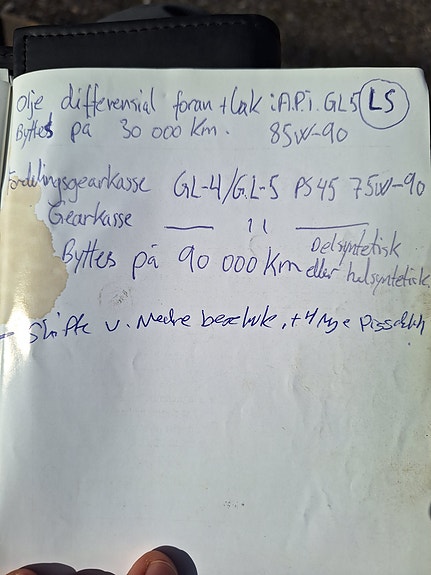 Olje differensial foran + bak : A.P.i. GL5 LS
Byttes på 30 000 Km. 85W-90
Fordelingsgearkasse GL-4/G.L-5 PS 45 75W-90
Gearkasse — 11 —
Delsyntetisk
Byttes på 90 000 Km eller helsyntetisk
- Skifte v. Nedre + 4 Nye